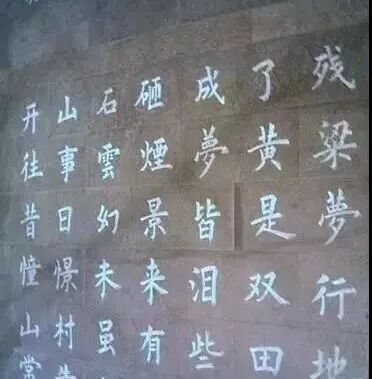 开山石砸成了残
往事雲煙夢黄梁
昔日幻景皆是夢
憧憬未来泪双行
山村虽有些田地